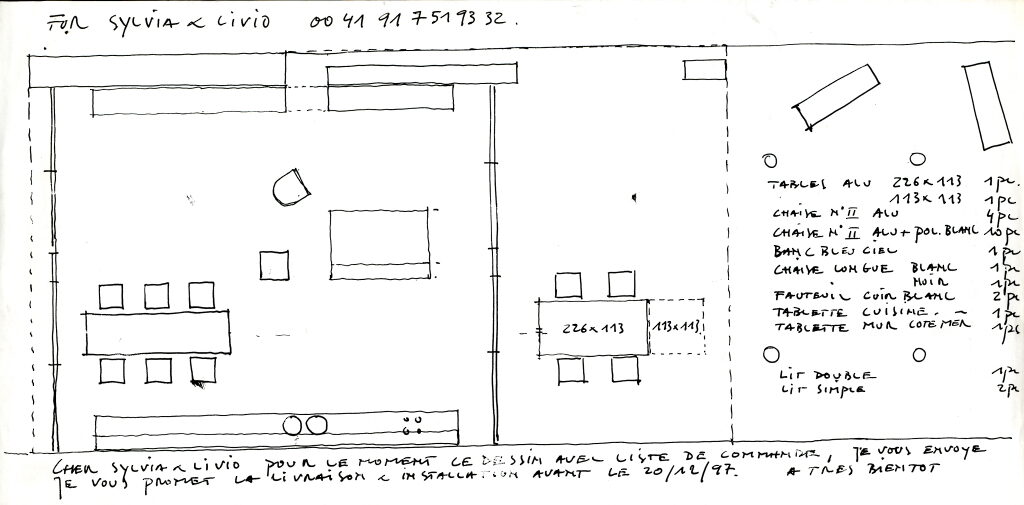 FOR SYLVIA & LIVIO 00 41 91 7519332.
TABLES ALU 226x113 1pc.
113x113 1pc
CHAISE N° II ALU 4pc
CHAISE N° II ALU + POL. BLANC 10pc
BANC BLEU CIEL 1pc
CHAISE LONGUE BLANC 1pc
NOIR 1pc
FAUTEUIL CUIR BLANC 2pc
TABLETTE CUISINE. ~ 1pc
TABLETTE MUR COTE MER 1pc
226x113 113x113
LIT DOUBLE 1pc
LIT SIMPLE 2pc
CHER SYLVIA & LIVIO POUR LE MOMENT LE DESSIN AVEC LISTE DE COMMANDE, JE VOUS ENVOYE
JE VOUS PROMET LA LIVRAISON & INSTALLATION AVANT LE 20/12/97. A TRES BIENTOT